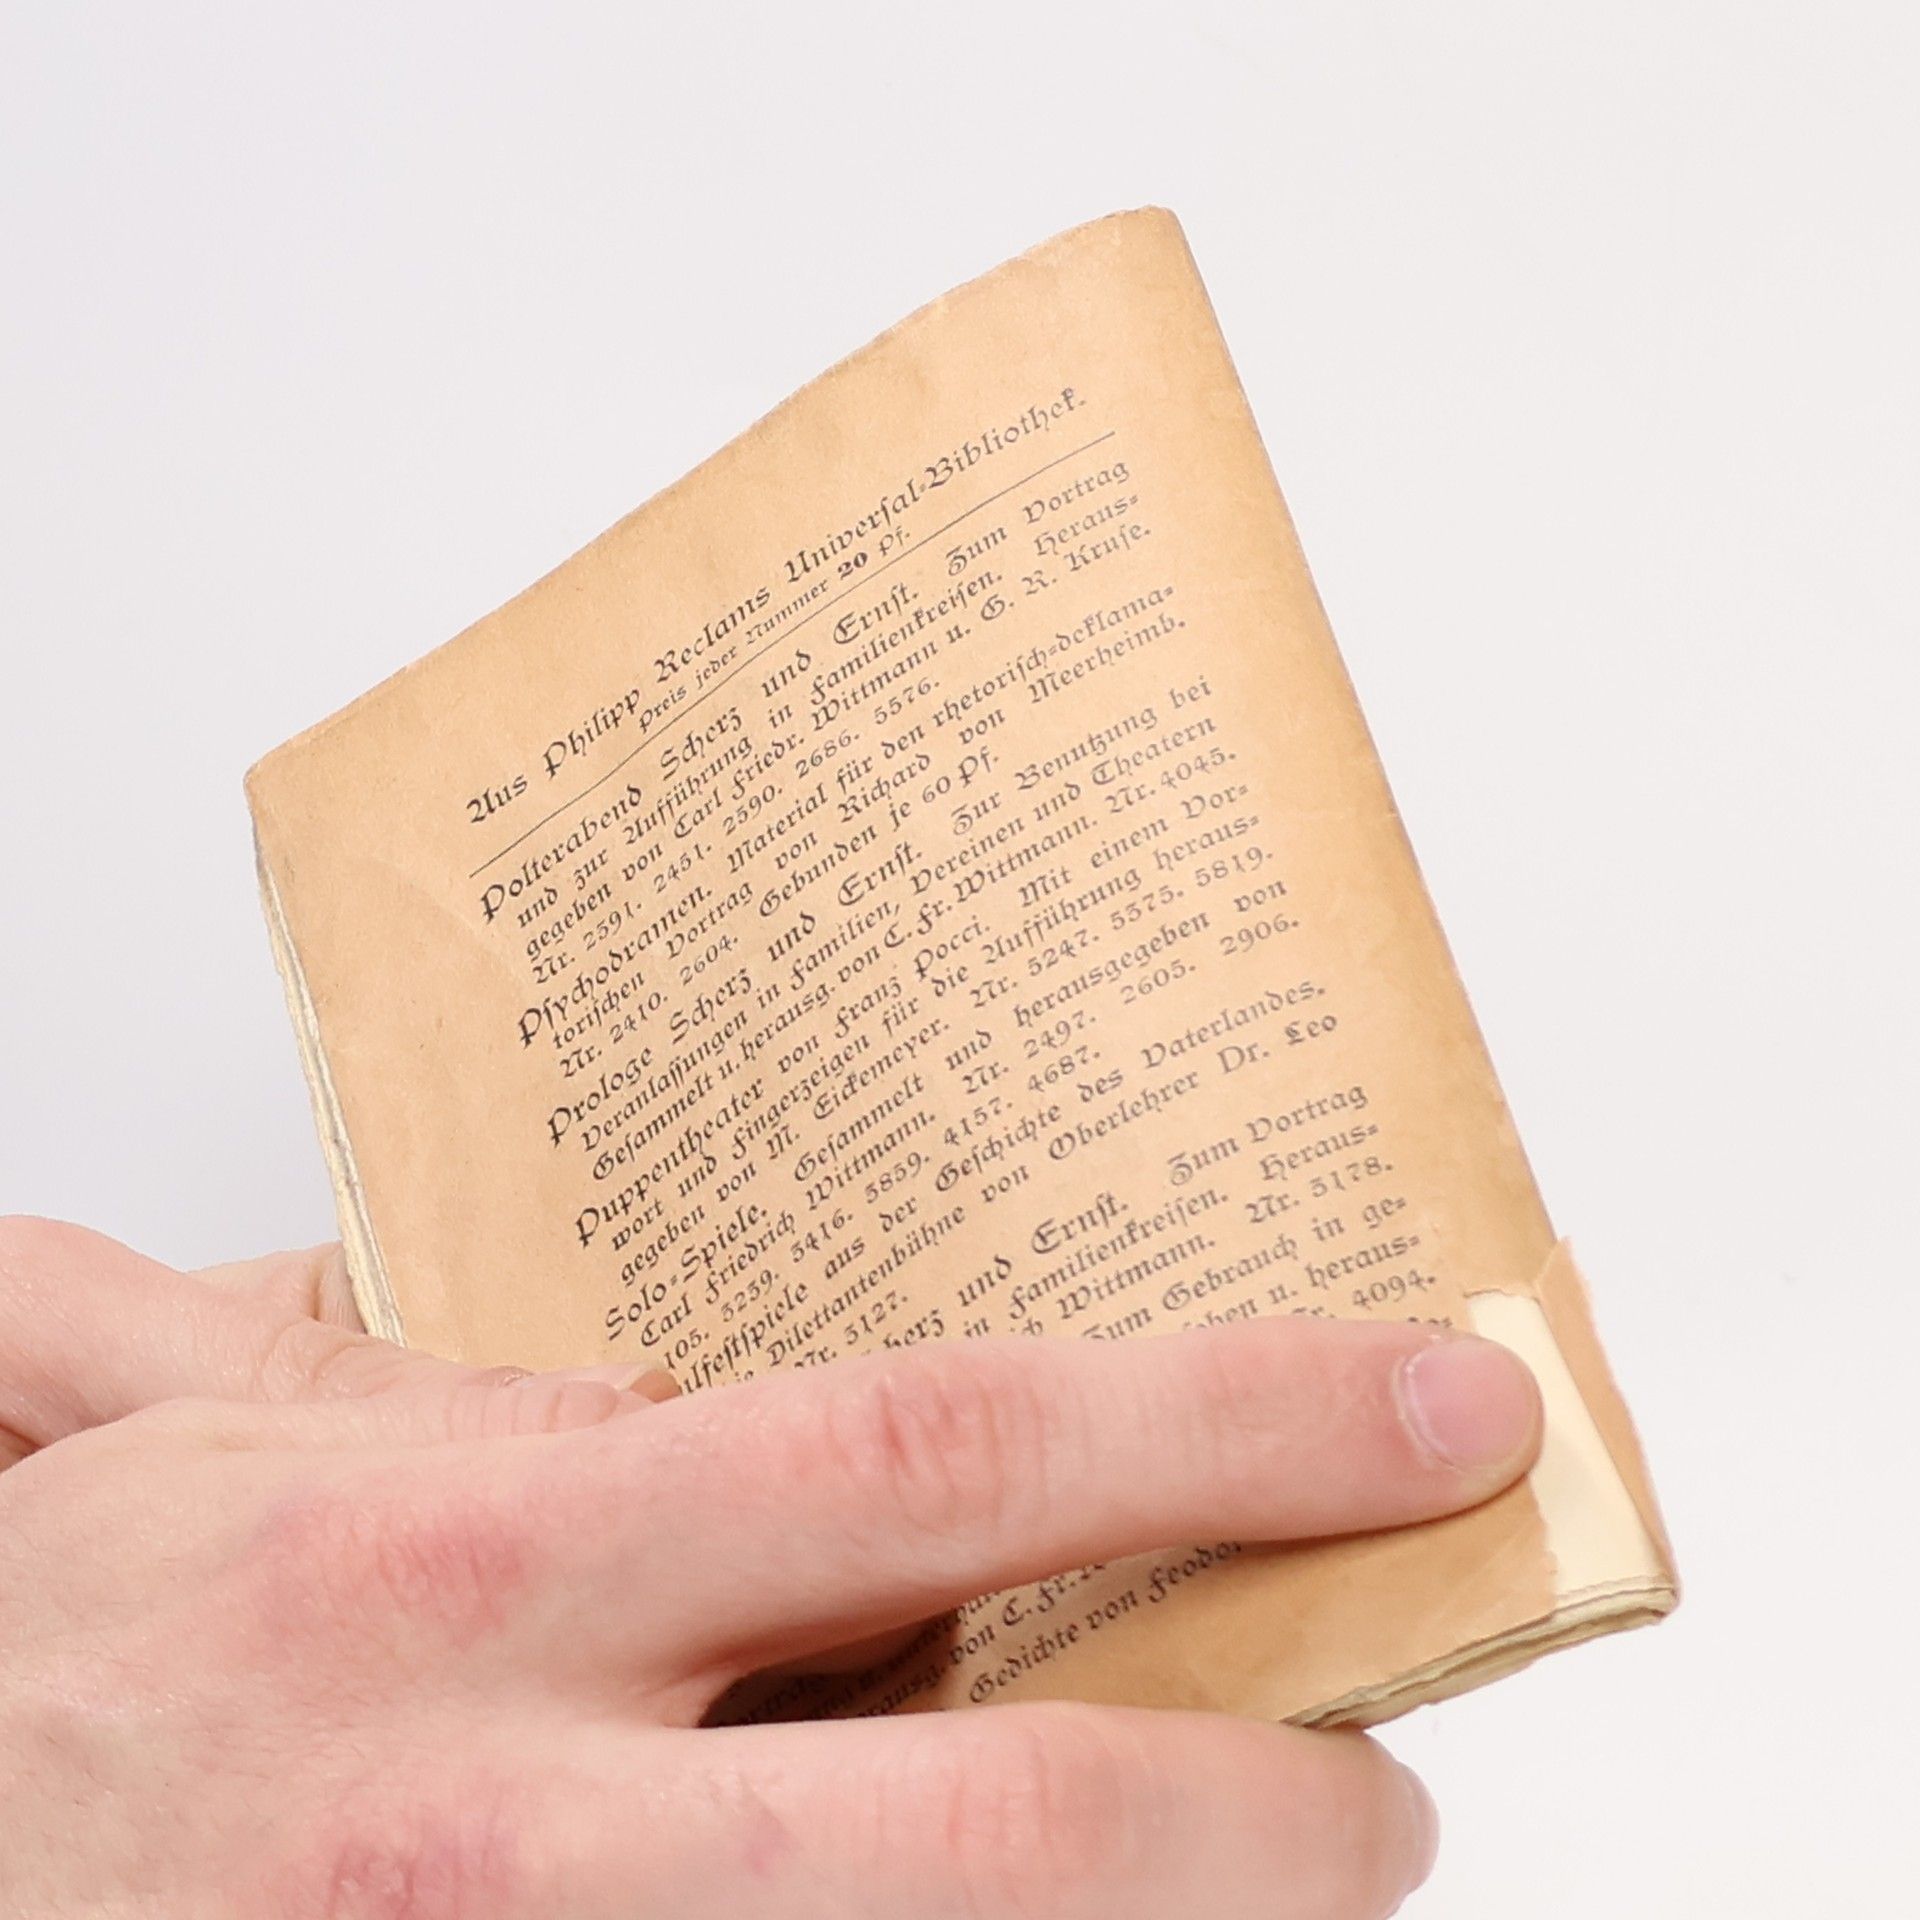 Aus Philipp Reclams Universal-Bibliothek.
Preis jeder Nummer 20 Pf.
Polterabend Scherz und Ernst. Zum Vortrag
und zur Aufführung in Familienkreisen. Heraus-
gegeben von Carl Friedr. Wittmann u. G. R. Kruse.
Nr. 2391. 2451. 2590. 2686. 5576.
Psychodramen. Material für den rhetorisch-deklama-
torischen Vortrag von Richard von Meerheimb.
Nr. 2410. 2604. Gebunden je 60 Pf.
Prologe Scherz und Ernst. Zur Benutzung bei
Veranlassungen in Familien, Vereinen und Theatern
Gesammelt u. herausg. von C. Fr. Wittmann. Nr. 4045.
Puppentheater von Franz Pocci. Mit einem Vor-
wort und Fingerzeigen für die Aufführung heraus-
gegeben von M. Eickemeyer. Nr. 5247. 5575. 5819.
Solo-Spiele. Gesammelt und herausgegeben von
Carl Friedrich Wittmann. Nr. 2497. 2605. 2906.
105. 3239. 3416. 3839. 4157. 4687.
ulfestspiele aus der Geschichte des Vaterlandes.
Dilettantenbühne von Oberlehrer Dr. Leo
Nr. 3127.
herz und Ernst. Zum Vortrag
in Familienkreisen. Heraus-
Wittmann. Nr. 3178.
Zum Gebrauch in ge-
u. heraus-
4094.
von C. Fr.
Gedichte von Feodo